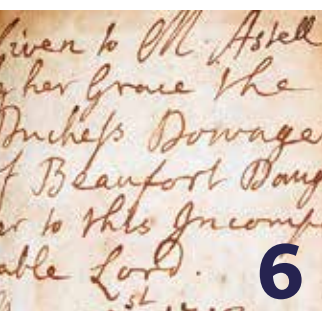 Given to M. Astell
her Grace the
Duchess Dowage
Beaufort Daug
er to this Incomp
able Lord.
st
6